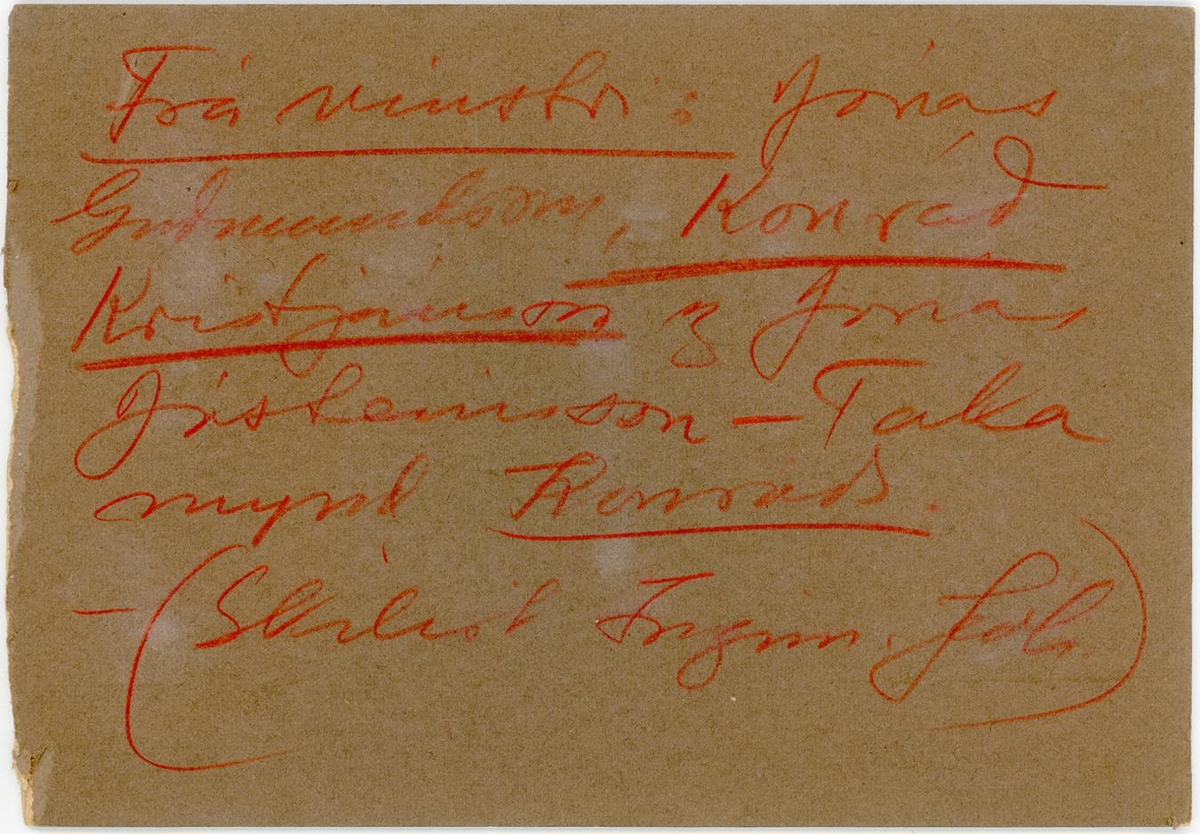 Frá vinstri: Jónas
Guðmundsson, Konráð
Kristjánsson og Jónas
Jósteinsson – Taka
mynd Konráðs.
– (Skilist Ingim. Jóh.)